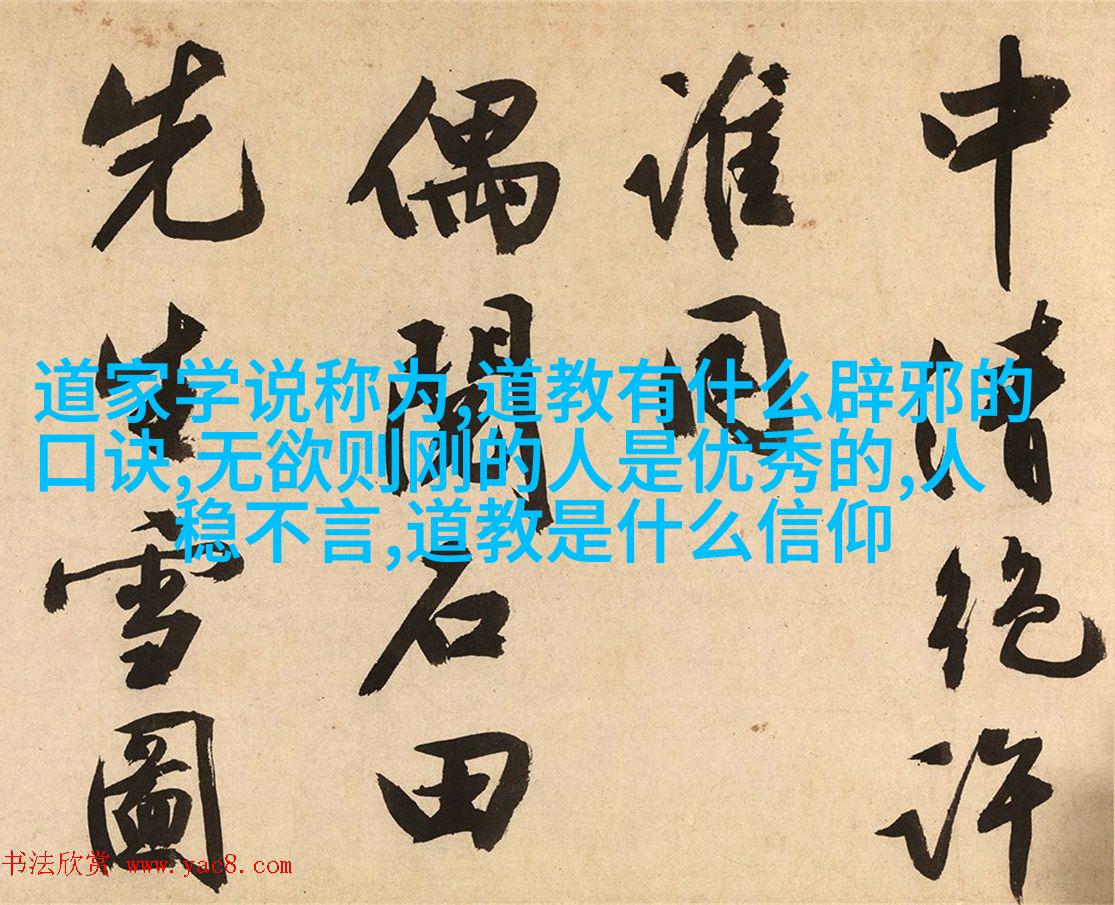 道家学说称为,道教有什么辟邪的
口诀,无欲则刚的人是优秀的,人
稳不言,道教是什么信仰
中情絕許
誰
偶石田
先生雪圖
书法欣赏 www.yac8.com